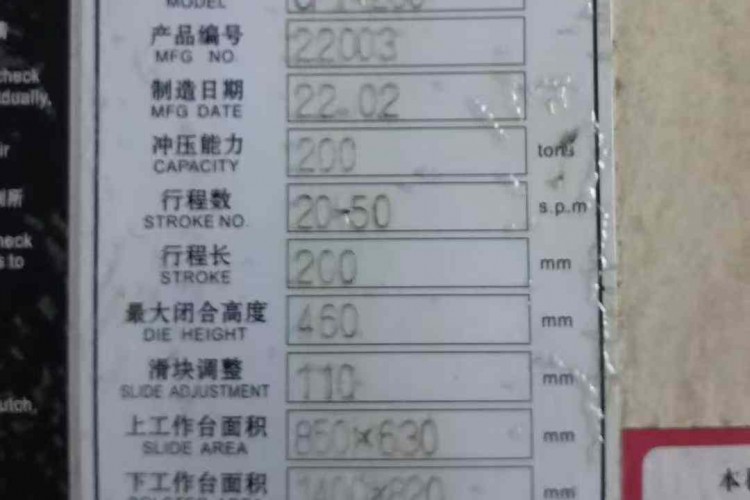 MODEL
产品编号 22003
MFG NO.
制造日期 22.02
MFG DATE
冲压能力 200 tons
CAPACITY
行程数 20-50 s.p.m
STROKE NO.
行程长 200 mm
STROKE
最大闭合高度 460 mm
DIE HEIGHT
滑块调整 110 mm
SLIDE ADJUSTMENT
上工作台面积 850×630 mm
SLIDE AREA
下工作台面积 1400×820 mm
check
dually,
neck
s to
本